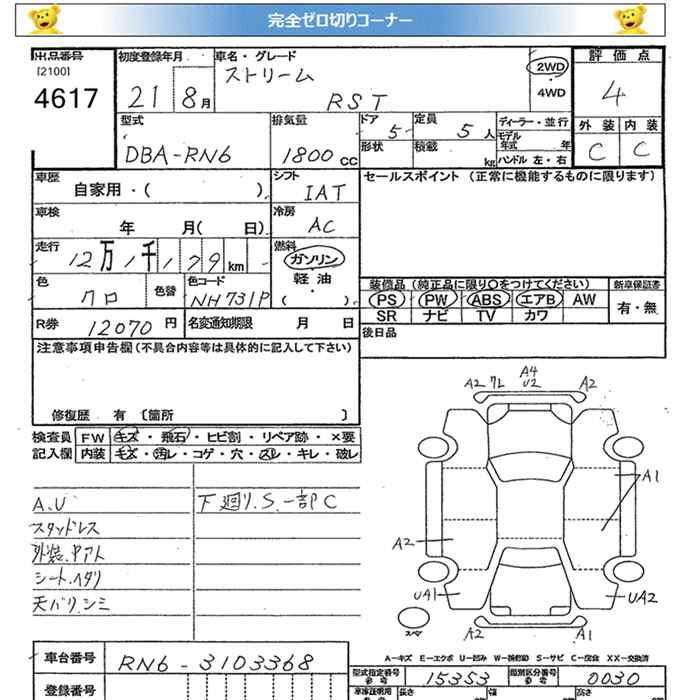 完全ゼロ切りコーナー
出品番号 初度登録年月 車名・グレード 評価点
[2100] ストリーム 2WD
4617 21 8月 RST 4WD 4
型式 排気量 ドア 5 定員 5人 ディーラー・並行 外装 内装
形状 積載 kg モデル年式 年
DBA-RN6 1800cc ハンドル 左・右 C C
車歴 自家用・( ) シフト IAT セールスポイント (正常に機能するものに限ります)
車検 年 月( 日) 冷房 AC
走行 12万1千179km 燃料 ガソリン・軽油・( )
色 クロ 色替 色コード NH731P 装備品 (純正品に限り○をつけてください) 新車保証書
PS PW ABS エアB AW 有・無
SR ナビ TV カワ
R券 12070円 名変通知期限 月 日 後日品
注意事項申告欄(不具合内容等は具体的に記入して下さい)
修復歴 有 [箇所 ]
検査員 FW キズ・飛石・ヒビ割・リペア跡・×要
記入欄 内装 キズ・汚レ・コゲ・穴・スレ・キレ・破レ
A.U 下廻り.S.一部C
スタッドレス
外装.中アト
シート.ヘタリ
天バリ.シミ
A2 フL A4 U2 A2
A1
A2
UA1 UA2
スペア A2 A1
A-キズ E-エクボ U-凹み W-補修跡 S-サビ C-腐食 XX-交換済
車台番号 RN6-3103368 型式指定番号 参考 15353 類別区分番号 参考 0030
登録番号 車庫証明用 参考 長さ 幅 高さ